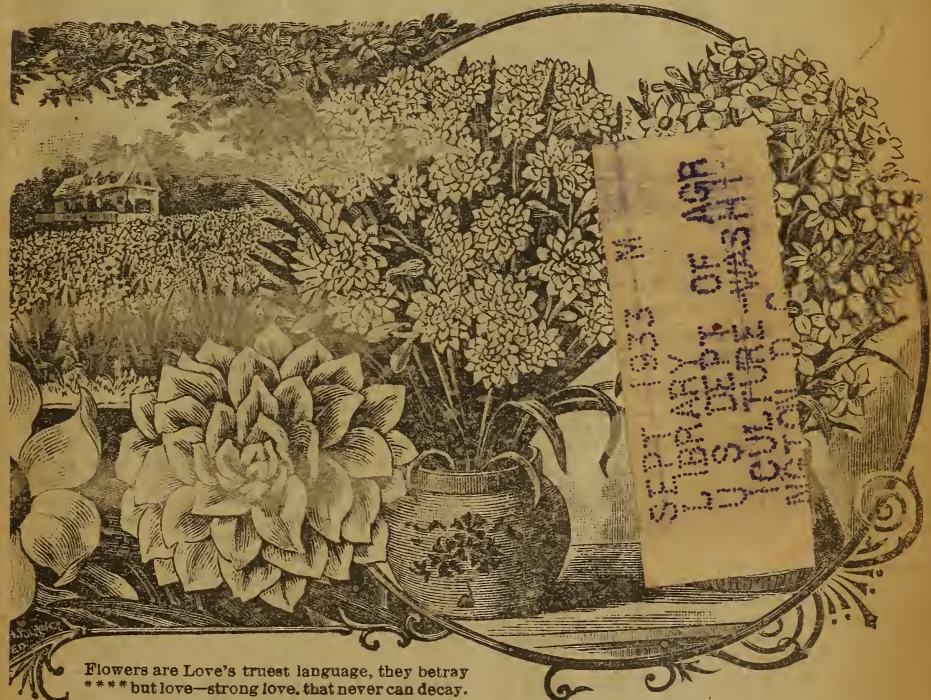 SEPT 1933 M
LIBRARY
U S DEPT OF AGR
ICULTURE -WASHI
NGTON D C
Flowers are Love's truest language, they betray
**** but love—strong love, that never can decay.